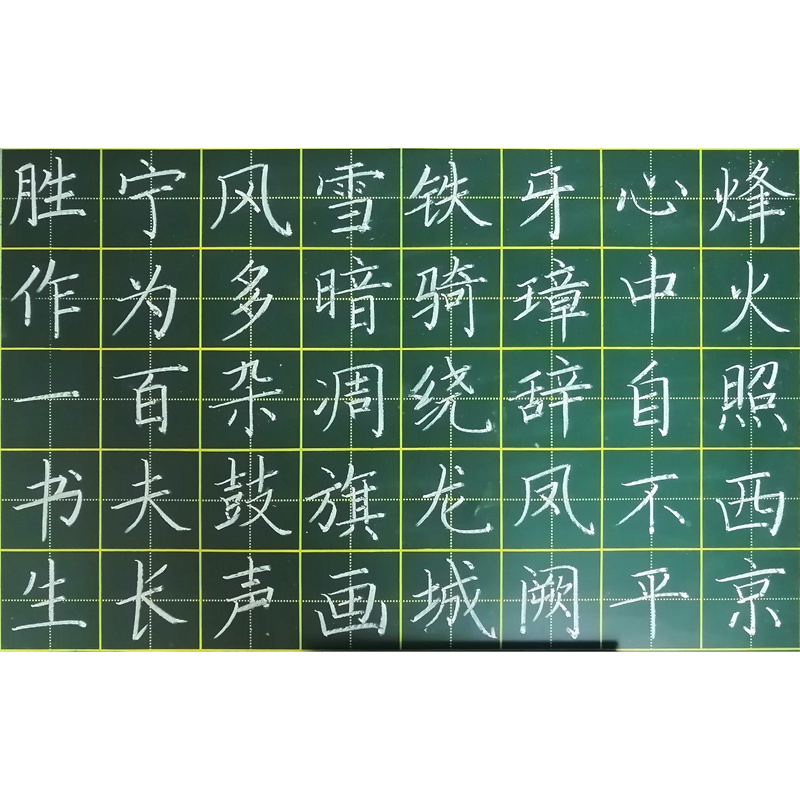 烽火照西京
心中自不平
牙璋辞凤阙
铁骑绕龙城
雪暗凋旗画
风多杂鼓声
宁为百夫长
胜作一书生